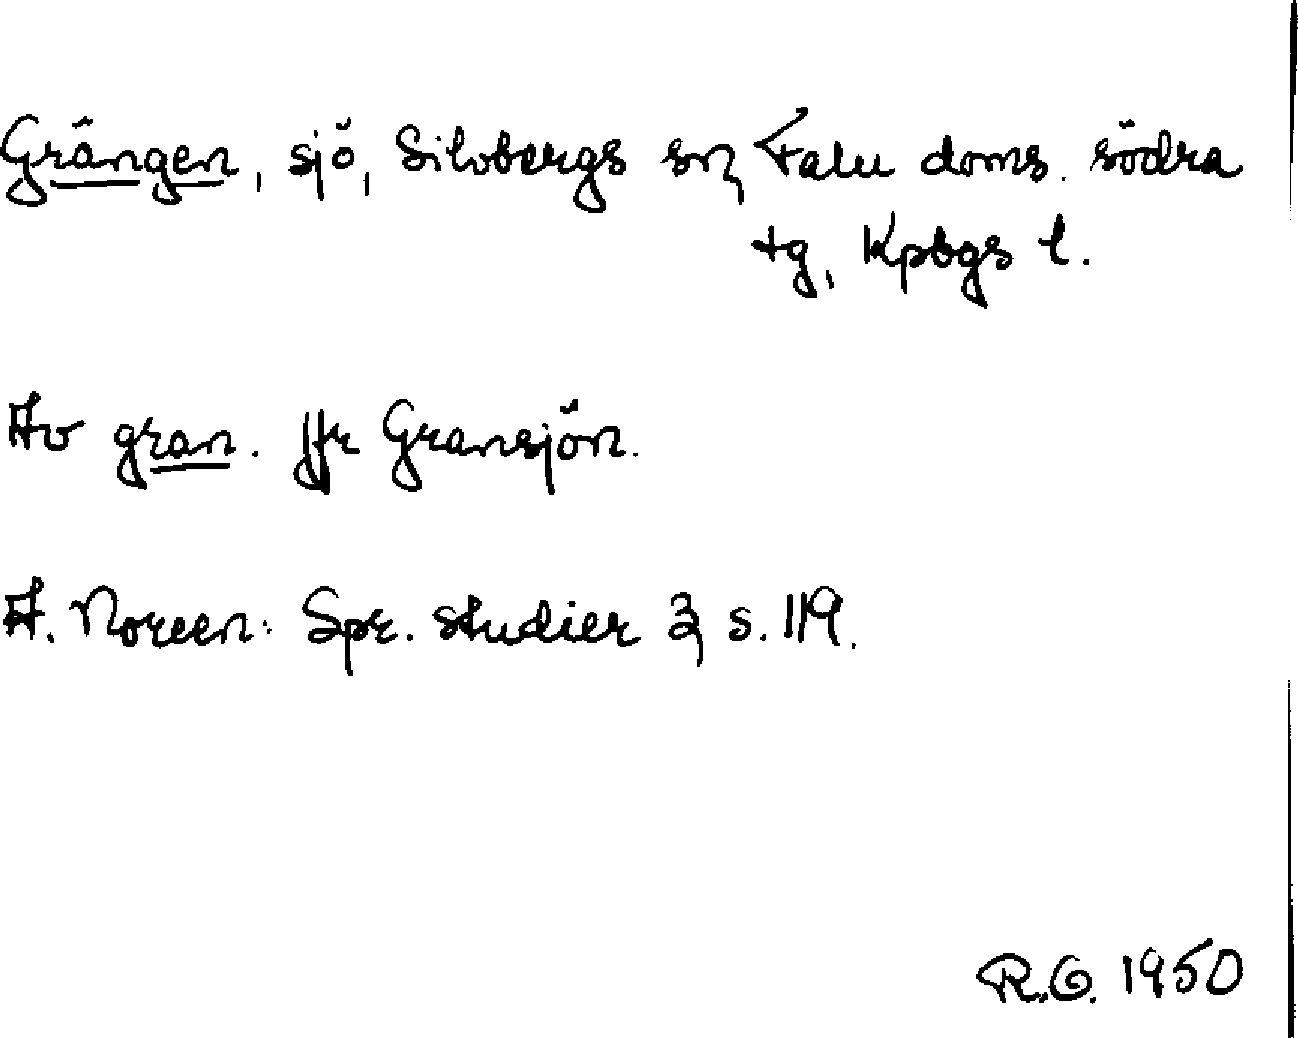 Grängen, sjö, Silvbergs sn, Falu doms. södra
tg, Kpbgs l.
Av gran. Jfr Gransjön.
A. Noreen: Spr. studier 3, s. 119.
R.G. 1950